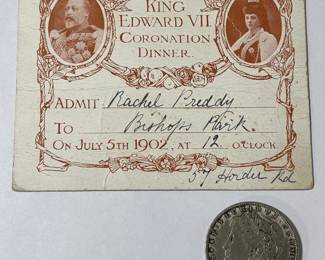 KING
EDWARD VII.
CORONATION
DINNER.
ADMIT Rachel Preddy
TO Bishops Park.
ON JULY 5TH 1902, AT 12 O'CLOCK
37 Horder Rd